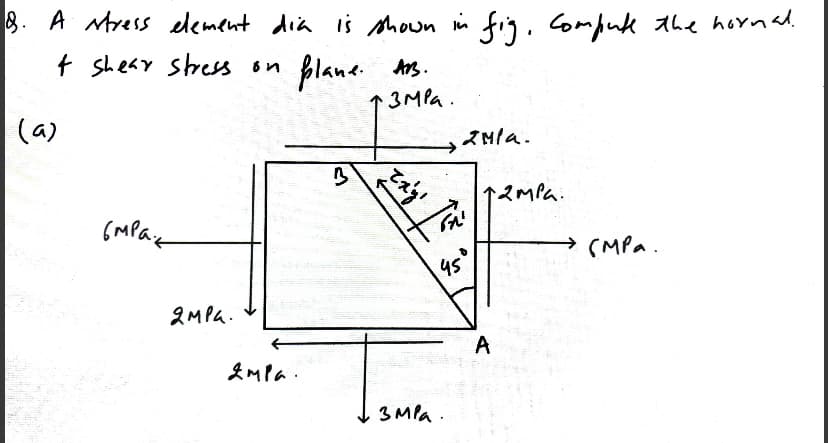 Q. A stress element dia is shown in fig. Compute the normal
& shear stress on plane AB.
↑ 3MPa.
(a)
2MPa.
B
τx'y'
↑2MPa.
σx'
6MPa.
6MPa.
45°
2MPa.
A
2MPa.
3MPa.